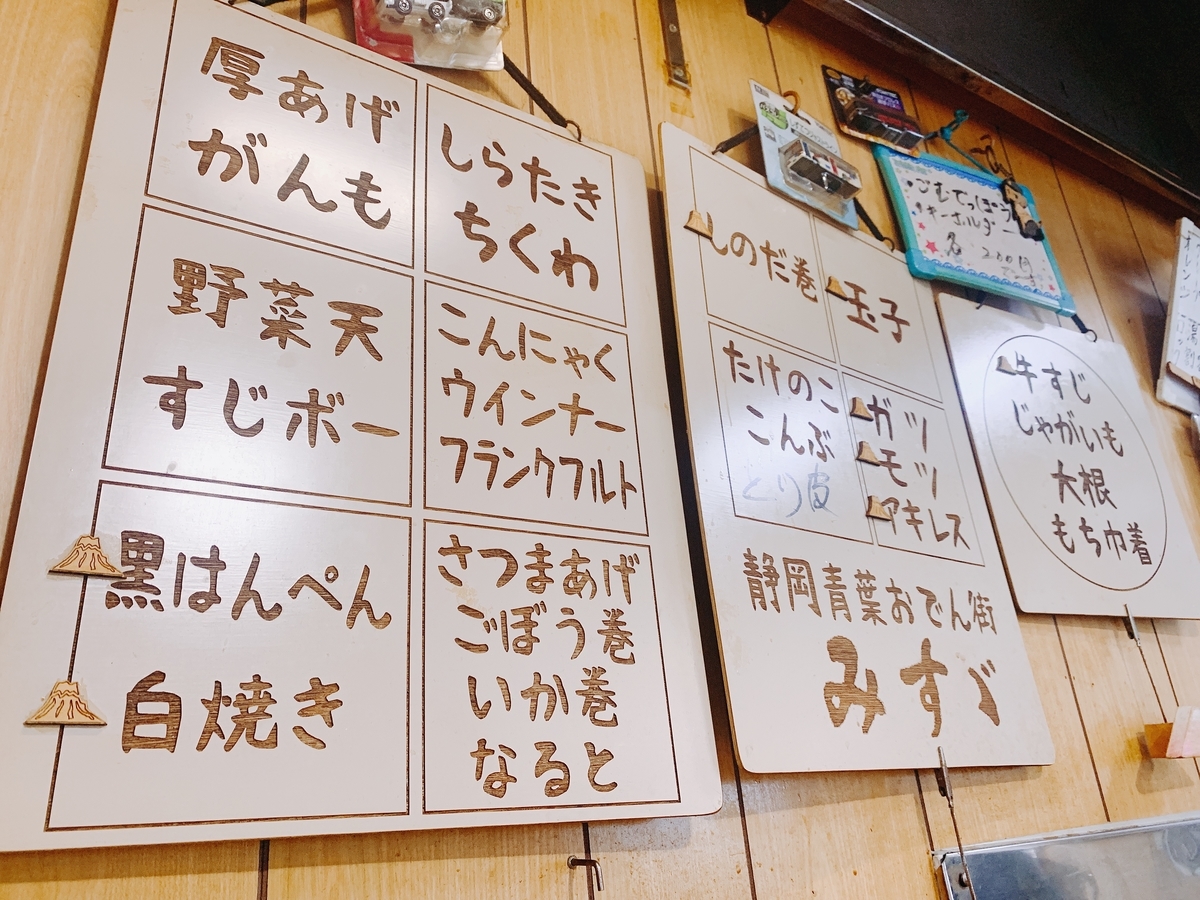 厚あげ
がんも
しらたき
ちくわ
野菜天
すじボー
こんにゃく
ウインナー
フランクフルト
黒はんぺん
白焼き
さつまあげ
ごぼう巻
いか巻
なると
しのだ巻
玉子
たけのこ
こんぶ
とり皮
ガツ
モツ
アキレス
静岡青葉おでん街
みすゞ
ごむてっぽう
キーホルダー
各200円
牛すじ
じゃがいも
大根
もち巾着
オレンジ